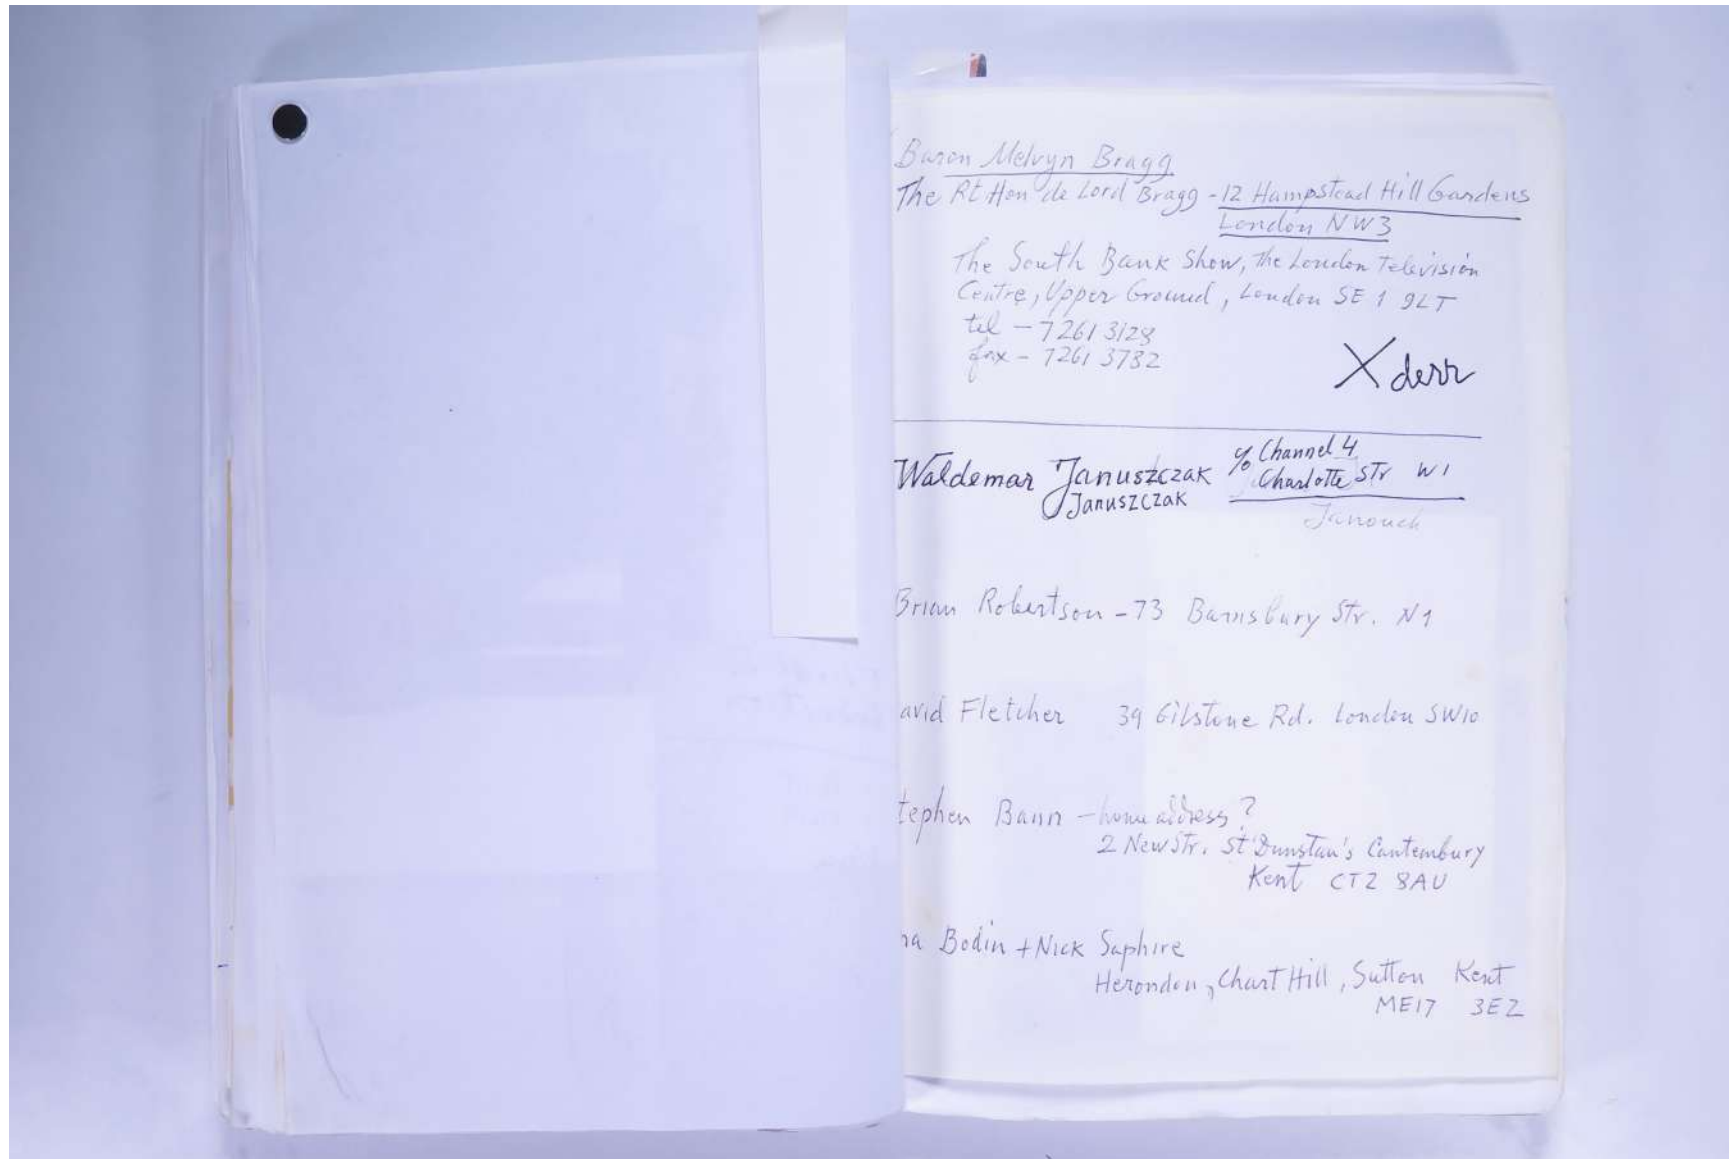 Baron Melvyn Bragg
The Rt Hon de Lord Bragg - 12 Hampstead Hill Gardens
London NW3
The South Bank Show, The London Televisión
Centre, Upper Ground, London SE 1 9LT
tel - 7261 3128
fax - 7261 3782
X derr
Waldemar Januszczak
Januszczak
c/o Channel 4
Charlotte Str W1
Janouch
Brian Robertson - 73 Barnsbury Str. N1
avid Fletcher 39 Gilstone Rd. London SW10
tephen Bann - home address?
2 New Str. St Dunstan's Cantembury
Kent CT2 8AU
na Bodin + Nick Saphire
Herondon, Chart Hill, Sutton Kent
ME17 3EZ